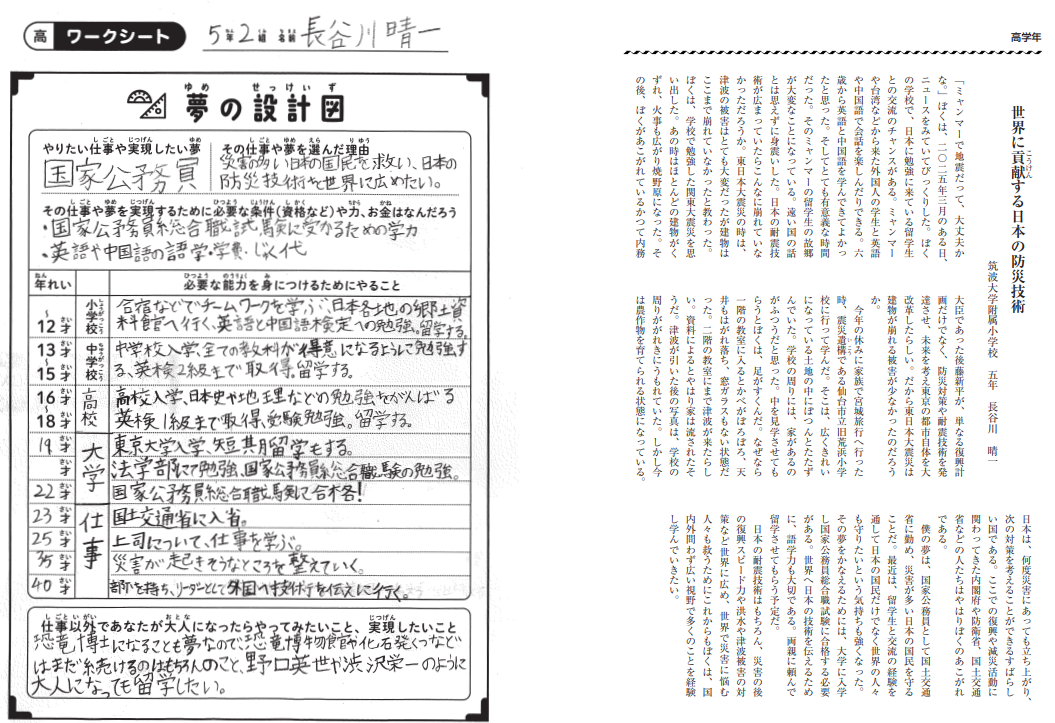 高 ワークシート
5年2組 名前 長谷川晴一
夢の設計図
やりたい仕事や実現したい夢
国家公務員
その仕事や夢を選んだ理由
災害の多い日本の国民を救い、日本の
防災技術を世界に広めたい。
その仕事や夢を実現するために必要な条件(資格など)や力、お金はなんだろう
・国家公務員総合職試験に受かるための学力
・英語や中国語の語学・学費・じゅく代
年れい 必要な能力を身につけるためにやること
～12才 小学校 合宿などでチームワークを学ぶ、日本各地の郷土資
料館へ行く、英語と中国語検定への勉強。留学する。
13才～15才 中学校 中学校入学、全ての教科が得意になるように勉強す
る、英検2級まで取得、留学する。
16才～18才 高校 高校入学、日本史や地理などの勉強をがんばる
英検1級まで取得、受験勉強。留学する。
19才 大学 東京大学入学、短期留学もする。
才 法学部にて勉強、国家公務員総合職試験の勉強。
22才 国家公務員総合職試験に合格!
23才 仕事 国土交通省に入省。
25才 上司について、仕事を学ぶ。
35才 災害が起きそうなところを整えていく。
40才 部下を持ち、リーダーとして外国へ技術を伝えに行く。
仕事以外であなたが大人になったらやってみたいこと、実現したいこと
恐竜博士になることも夢なので、恐竜博物館や化石発くつなど
はまだ続けるのはもちろんのこと、野口英世や渋沢栄一のように
大人になっても留学したい。
高学年
世界に貢献する日本の防災技術
筑波大学附属小学校 五年 長谷川 晴一
「ミャンマーで地震だって、大丈夫か
な。」ぼくは、二〇二五年三月のある日、
ニュースをみていてびっくりした。ぼく
の学校で、日本に勉強に来ている留学生
との交流のチャンスがある。ミャンマー
や台湾などから来た外国人の学生と英語
や中国語で会話を楽しんだりできる。六
歳から英語と中国語を学んできてよかっ
たと思った。そしてとても有意義な時間
だった。そのミャンマーの留学生の故郷
が大変なことになっている。遠い国の話
とは思えずに身震いした。日本の耐震技
術が広まっていたらこんなに崩れていな
かっただろうか。東日本大震災の時は、
津波の被害はとても大変だったが建物は
ここまで崩れていなかったと教わった。
ぼくは、学校で勉強した関東大震災を思
い出した。あの時はほとんどの建物がく
ずれ、火事も広がり焼野原になった。そ
の後、ぼくがあこがれているかつて内務
大臣であった後藤新平が、単なる復興計
画だけでなく、防災対策や耐震技術を発
達させ、未来を考え東京の都市自体を大
改革したらしい。だから東日本大震災は
建物が崩れる被害が少なかったのだろう
か。
今年の休みに家族で宮城旅行へ行った
時、震災遺構である仙台市立旧荒浜小学
校に行って学んだ。そこは、広くきれい
になっている土地の中にぽつんとたたず
んでいた。学校の周りには、家があるの
がふつうだと思った。中を見学させても
らうとぼくは、足がすくんだ。なぜなら
一階の教室に入るとかべがぼろぼろ、天
井もはがれ落ち、窓ガラスもない状態だ
った。二階の教室にまで津波が来たらし
い。資料によるとやはり家は流されたそ
うだ。津波が引いた後の写真は、学校の
周りががれきにうもれていた。しかし今
は農作物を育てられる状態になっている。
日本は、何度災害にあっても立ち上がり、
次の対策を考えることができるすばらし
い国である。ここでの復興や減災活動に
関わってきた内閣府や防衛省、国土交通
省などの人たちはやはりぼくのあこがれ
である。
僕の夢は、国家公務員として国土交通
省に勤め、災害が多い日本の国民を守る
ことだ。最近は、留学生と交流の経験を
通して日本の国民だけでなく世界の人々
も守りたいという気持ちも強くなった。
その夢をかなえるためには、大学に入学
し国家公務員総合職試験に合格する必要
がある。世界へ日本の技術を伝えるため
に、語学力も大切である。両親に頼んで
留学させてもらう予定だ。
日本の耐震技術はもちろん、災害の後
の復興スピード力や洪水や津波被害の対
策など世界に広め、世界で災害に悩む
人々も救うためにこれからもぼくは、国
内外問わず広い視野で多くのことを経験
し学んでいきたい。